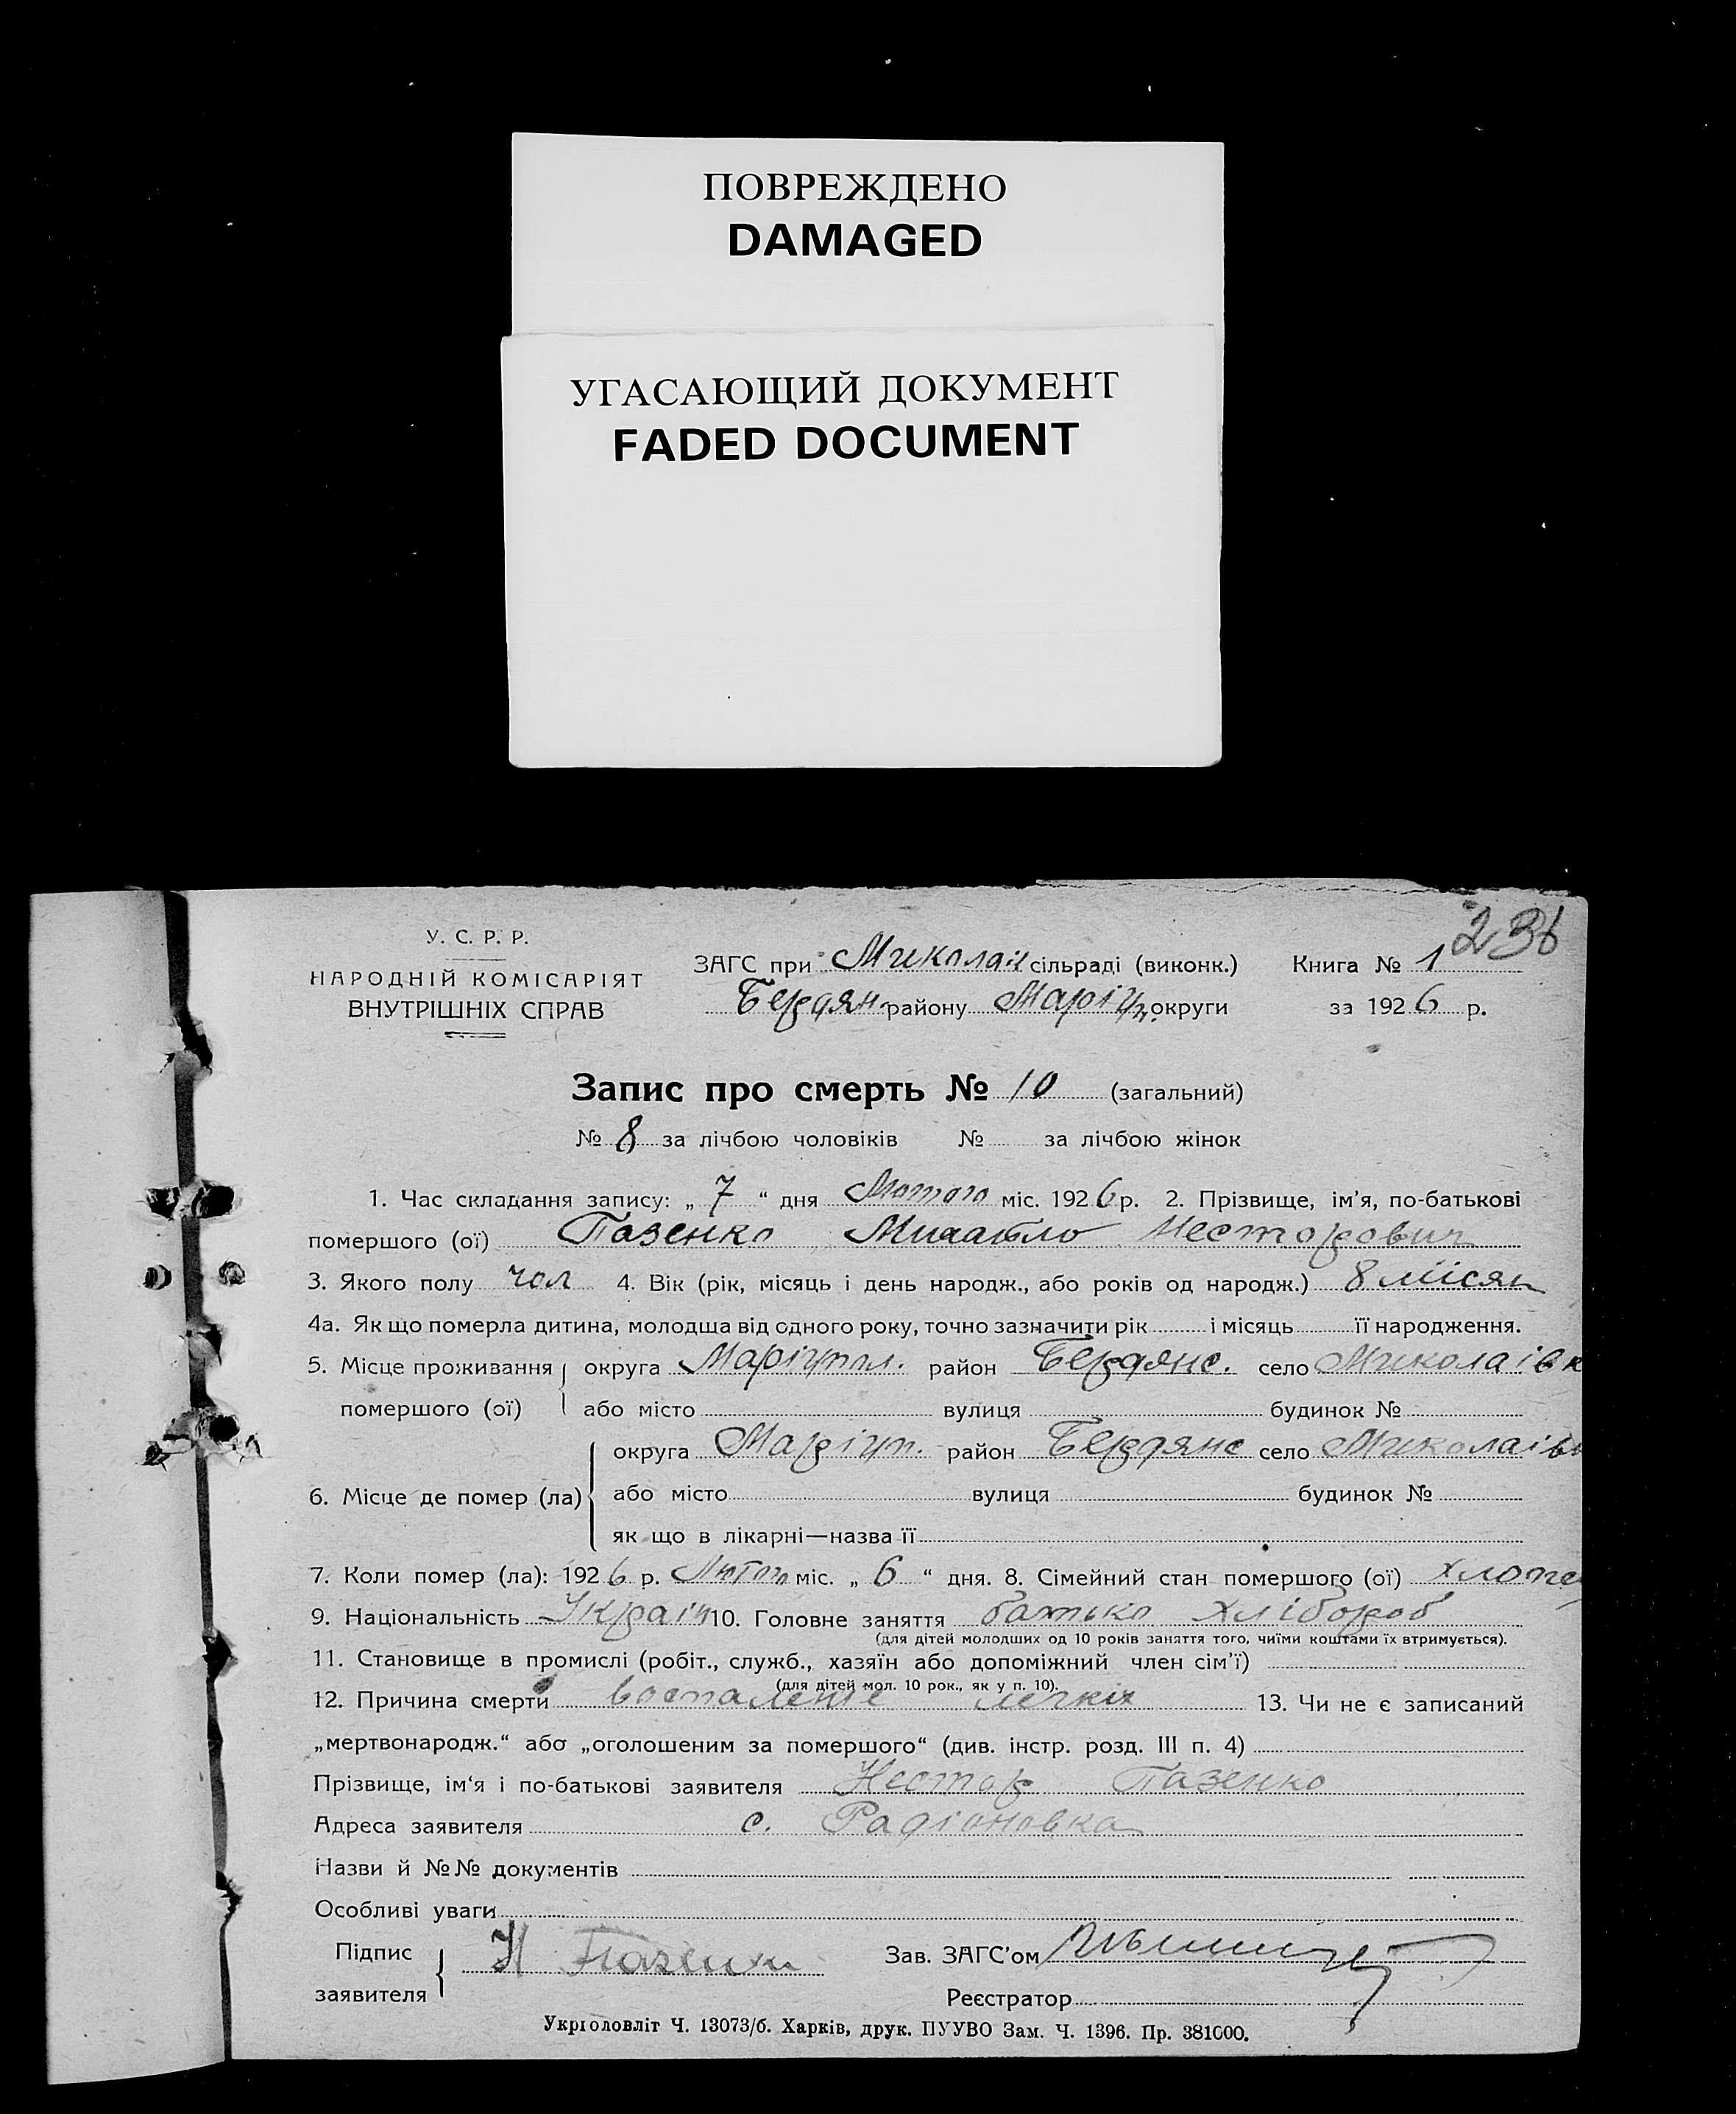 ПОВРЕЖДЕНО
DAMAGED
УГАСАЮЩИЙ ДОКУМЕНТ
FADED DOCUMENT
236
У. С. Р. Р.
НАРОДНІЙ КОМІСАРІЯТ
ВНУТРІШНІХ СПРАВ
ЗАГС при Миколаїв сільраді (виконк.) Книга № 1
Бердян. району Маріуп. округи за 1926 р.
Запис про смерть № 10 (загальний)
№ 8 за лічбою чоловіків № за лічбою жінок
1. Час складання запису: „ 7 “ дня Лютого міс. 1926 р. 2. Прізвище, ім’я, по-батькові
помершого (ої) Пазенко Михайло Несторович
3. Якого полу чол 4. Вік (рік, місяць і день народж., або років од народж.) 8 місяц
4а. Як що померла дитина, молодша від одного року, точно зазначити рік і місяць її народження.
5. Місце проживання помершого (ої) округа Маріупол. район Бердянс. село Миколаівк
або місто вулиця будинок №
6. Місце де помер (ла) округа Маріуп. район Бердянс село Миколаів
або місто вулиця будинок №
як що в лікарні—назва її
7. Коли помер (ла): 1926 р. Лютого міс. „ 6 “ дня. 8. Сімейний стан помершого (ої)
9. Національність Украін 10. Головне заняття батько хлібороб
(для дітей молодших од 10 років заняття того, чиїми коштами їх втримується).
11. Становище в промислі (робіт., служб., хазяїн або допоміжний член сім’ї)
(для дітей мол. 10 рок., як у п. 10).
12. Причина смерти воспаленіе легких 13. Чи не є записаний
„мертвонародж.“ або „оголошеним за помершого“ (див. інстр. розд. III п. 4)
Прізвище, ім‘я і по-батькові заявителя Нестор Пазенко
Адреса заявителя с. Радіоновка
Назви й №№ документів
Особливі уваги
Підпис заявителя Н Пазенко Зав. ЗАГС’ом
Реєстратор
Укрголовліт Ч. 13073/б. Харків, друк. ПУУВО Зам. Ч. 1396. Пр. 381000.